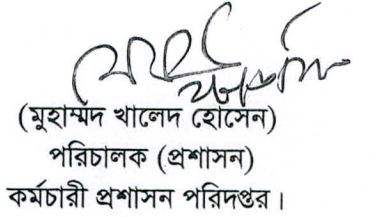 (মুহাম্মদ খালেদ হোসেন)
পরিচালক (প্রশাসন)
কর্মচারী প্রশাসন পরিদপ্তর।